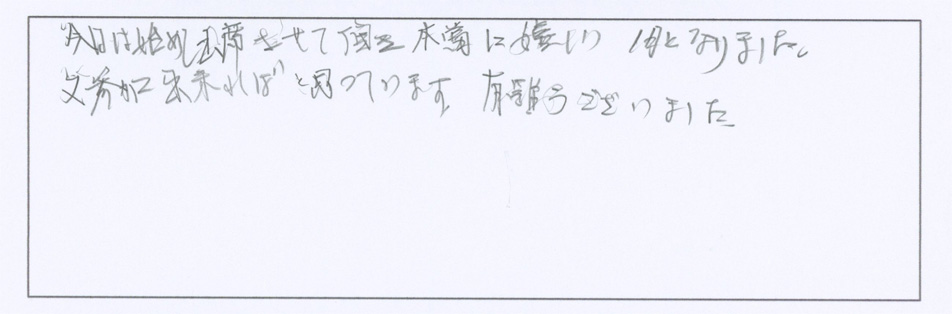 今日は始めて出席させて頂き本当に嬉しい1日となりました。
又参加出来ればと思っています 有難うございました